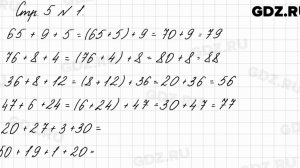 GDZ.RU
Стр. 5 № 1.
65 + 9 + 5 = (65+5) + 9 = 70+9 = 79
76 + 8 + 4 = (76 + 4) + 8 = 80 + 8 = 88
36 + 8 + 12 = (8 + 12) + 36 = 20 + 36 = 56
47 + 6 + 24 = (6 + 24) + 47 = 30 + 47 = 77
20 + 27 + 3 + 30 =
50 + 19 + 1 + 20 =